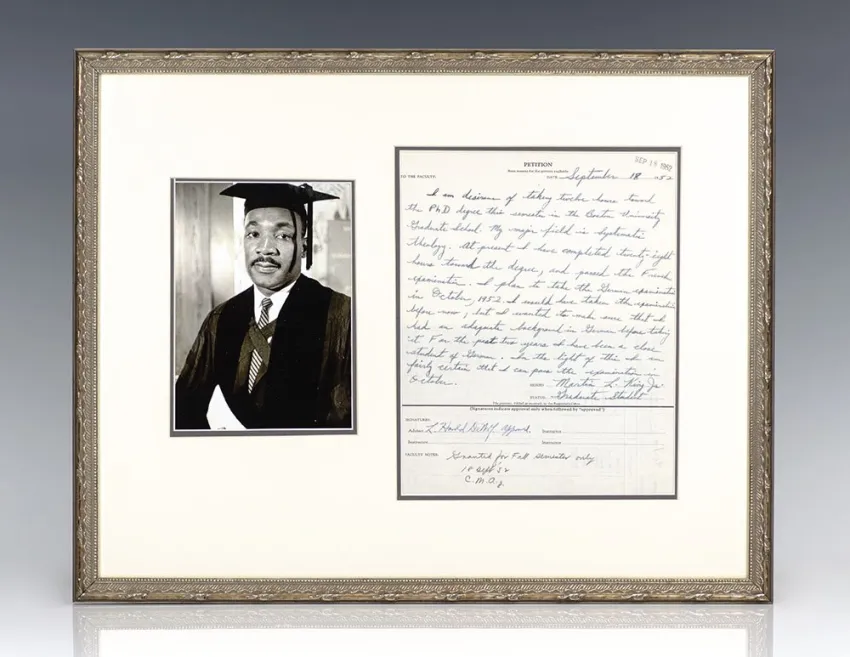 PETITION
SEP 19 1952
TO THE FACULTY:
DATE September 18 1952
I am desirous of taking twelve hours toward
the PhD degree this semester in the Boston University
Graduate School. My major field is Systematic
Theology. At present I have completed twenty-eight
hours toward the degree, and passed the French
examination. I plan to take the German examination
in October, 1952. I would have taken the examination
before now, but I wanted to make sure that I
had an adequate background in German before taking
it. For the past two years I have been a close
student of German. In the light of this I am
fairly certain that I can pass the examination in
October.
SIGNED Martin L. King Jr.
STATUS Graduate Student
(Signatures indicate approval only when followed by "approved")
SIGNATURES:
Adviser L. Harold DeWolf, approved. Instructor
Instructor Instructor
FACULTY NOTES: Granted for Fall semester only
18 Sept 52